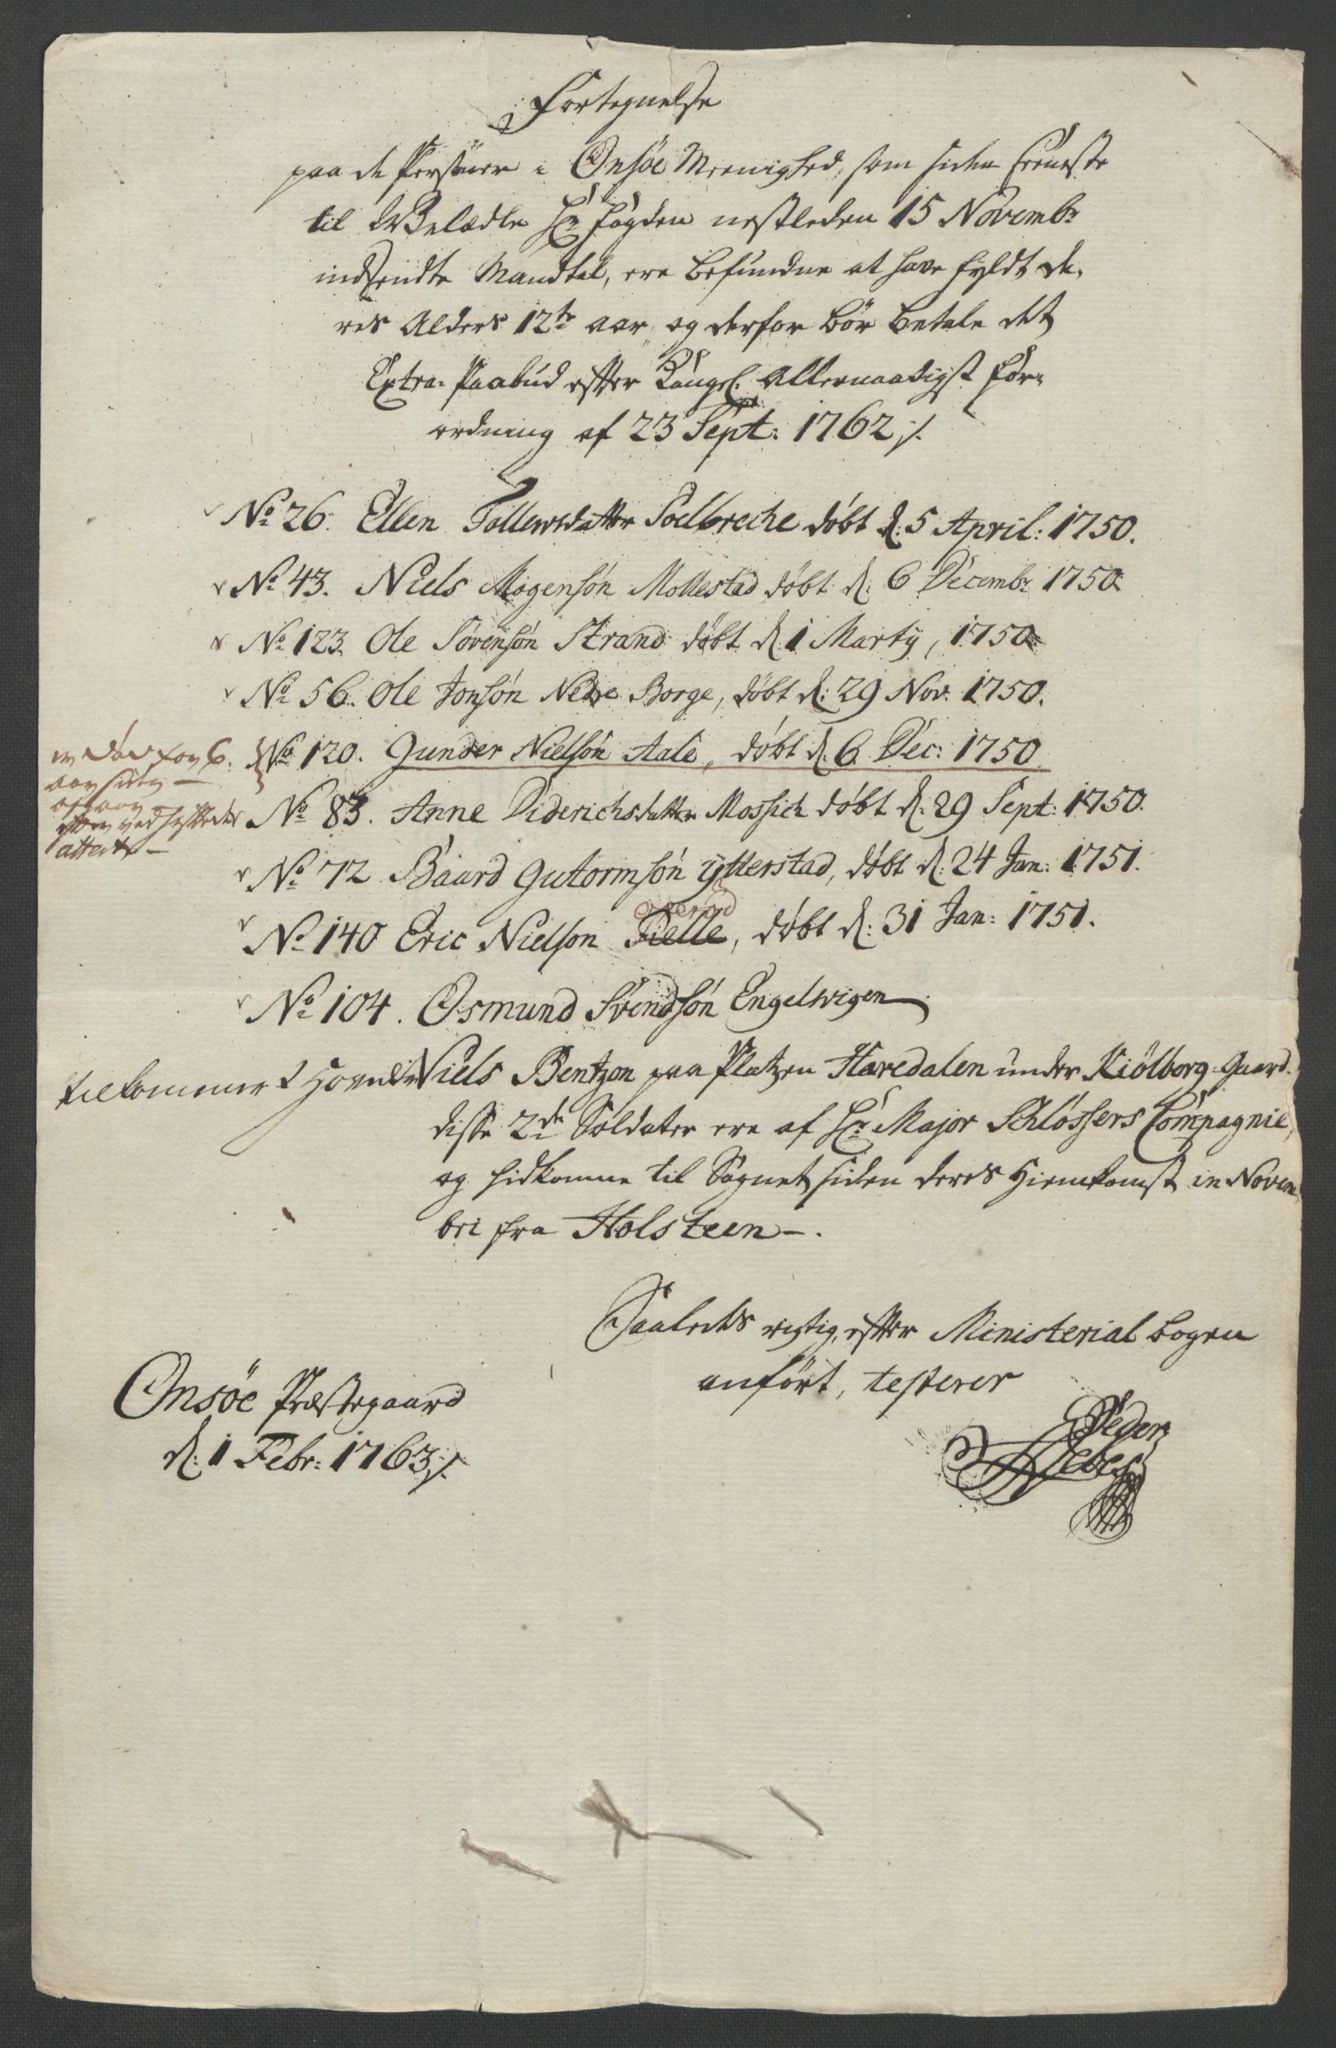 Fortegnelse
paa de Persöner i Onsöe Meenighed, som siden Seeneste
til Welædle Hr: Fogden nestleden 15 Novembr
indsendte Mandtal, ere befundne at have fyldt de-
res Alders 12te aar, og derfor bör betale det
Extra-Paabud efter Kongel: Allernaadigst For-
ordning af 23 Sept: 1762 ./.
No 26. Ellen Tollersdatter Soelbreche døbt d: 5 April: 1750.
No 43. Niels Mogensøn Mollestad døbt d: 6 Decembr 1750
No 123 Ole Sørensøn Strand døbt d 1 Martij, 1750
No 56. Ole Jonsøn Nedre Borge, døbt d: 29 Nov: 1750.
No 120. Gunder Nielsøn Aale, døbt d 6 Dec: 1750
er död for 6.
aar siden —
efter ved
attest —
No 83. Anne Diderichsdatter Mossich døbt d: 29 Sept: 1750.
No 72 Baard Gutormsøn Ytterstad, døbt d: 24 Jan: 1751.
No 140 Eric Nielsøn Fielle, døbt d: 31 Jan: 1751.
No 104. Osmund Svendsøn Engelwigen
tilkommer Niels Bentzon paa Platzen Haredalen under Kiölborg-Gaard.
disse 2de Soldater ere af Hr: Major Schlössers Compagnie,
og hidkomne til Sognet siden deres Hiemkomst in Novem
bri fra Holsteen —.
Saaledes rigtig efter Ministerial bogen
anført, testerer
Onsöe Præstegaard
d: 1 Febr: 1763 ./.
Peder